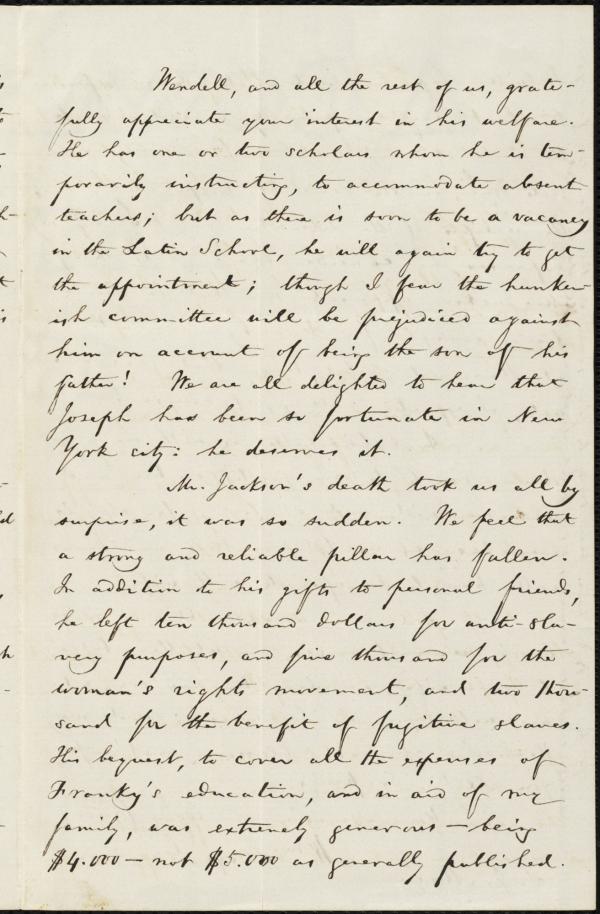 Wendell, and all the rest of us, grate-
fully appreciate your interest in his welfare.
He has one or two scholars whom he is tem-
porarily instructing, to accommodate absent
teachers; but as there is soon to be a vacancy
in the Latin School, he will again try to get
the appointment; though I fear the hunker-
ish committee will be prejudiced against
him on account of being the son of his
father! We are all delighted to hear that
Joseph has been so fortunate in New
York city: he deserves it.
Mr. Jackson's death took us all by
surprise, it was so sudden. We feel that
a strong and reliable pillar has fallen.
In addition to his gifts to personal friends,
he left ten thousand dollars for anti-sla-
very purposes, and five thousand for the
woman's rights movement, and two thou-
sand for the benefit of fugitive slaves.
His bequest, to cover all the expenses of
Franky's education, and in aid of my
family, was extremely generous — being
$4.000 — not $5.000 as generally published.